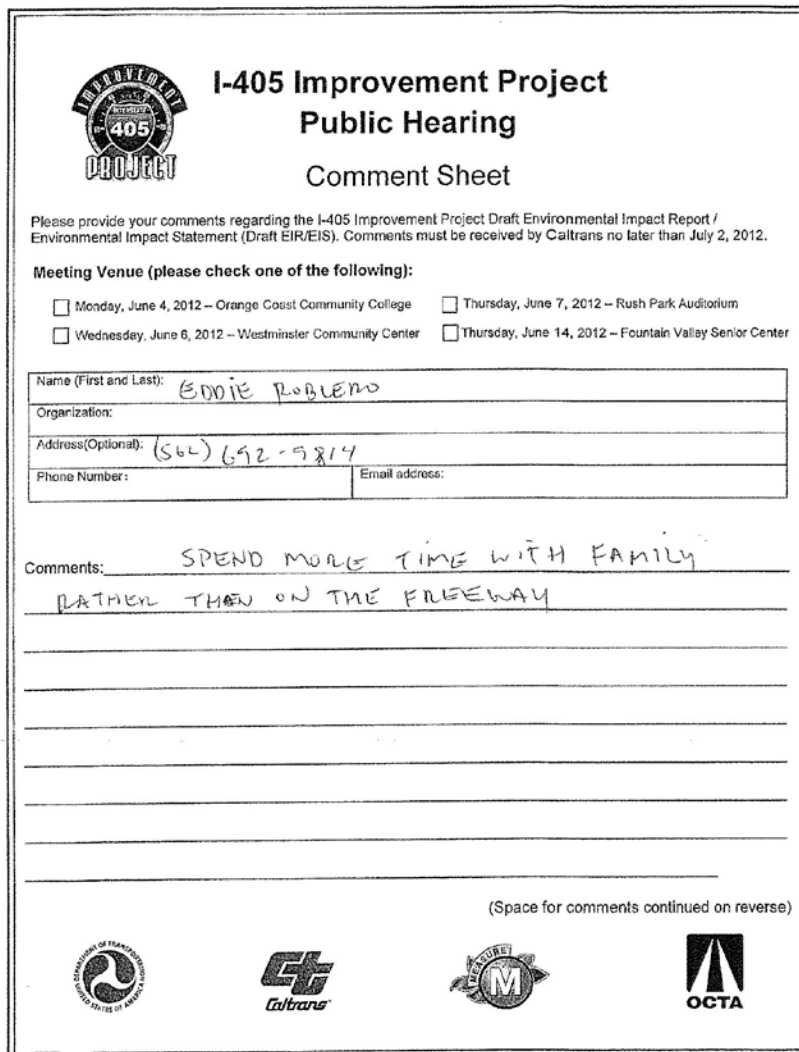 IMPROVEMENT
INTERSTATE
405
PROJECT
I-405 Improvement Project
Public Hearing
Comment Sheet
Please provide your comments regarding the I-405 Improvement Project Draft Environmental Impact Report /
Environmental Impact Statement (Draft EIR/EIS). Comments must be received by Caltrans no later than July 2, 2012.
Meeting Venue (please check one of the following):
Monday, June 4, 2012 – Orange Coast Community College
Thursday, June 7, 2012 – Rush Park Auditorium
Wednesday, June 6, 2012 – Westminster Community Center
Thursday, June 14, 2012 – Fountain Valley Senior Center
Name (First and Last): EDDIE ROBLERO
Organization:
Address(Optional): (562) 692-9814
Phone Number:
Email address:
Comments: SPEND MORE TIME WITH FAMILY
RATHER THEN ON THE FREEWAY
(Space for comments continued on reverse)
DEPARTMENT OF TRANSPORTATION
UNITED STATES OF AMERICA
Caltrans
MEASURE
M
OCTA